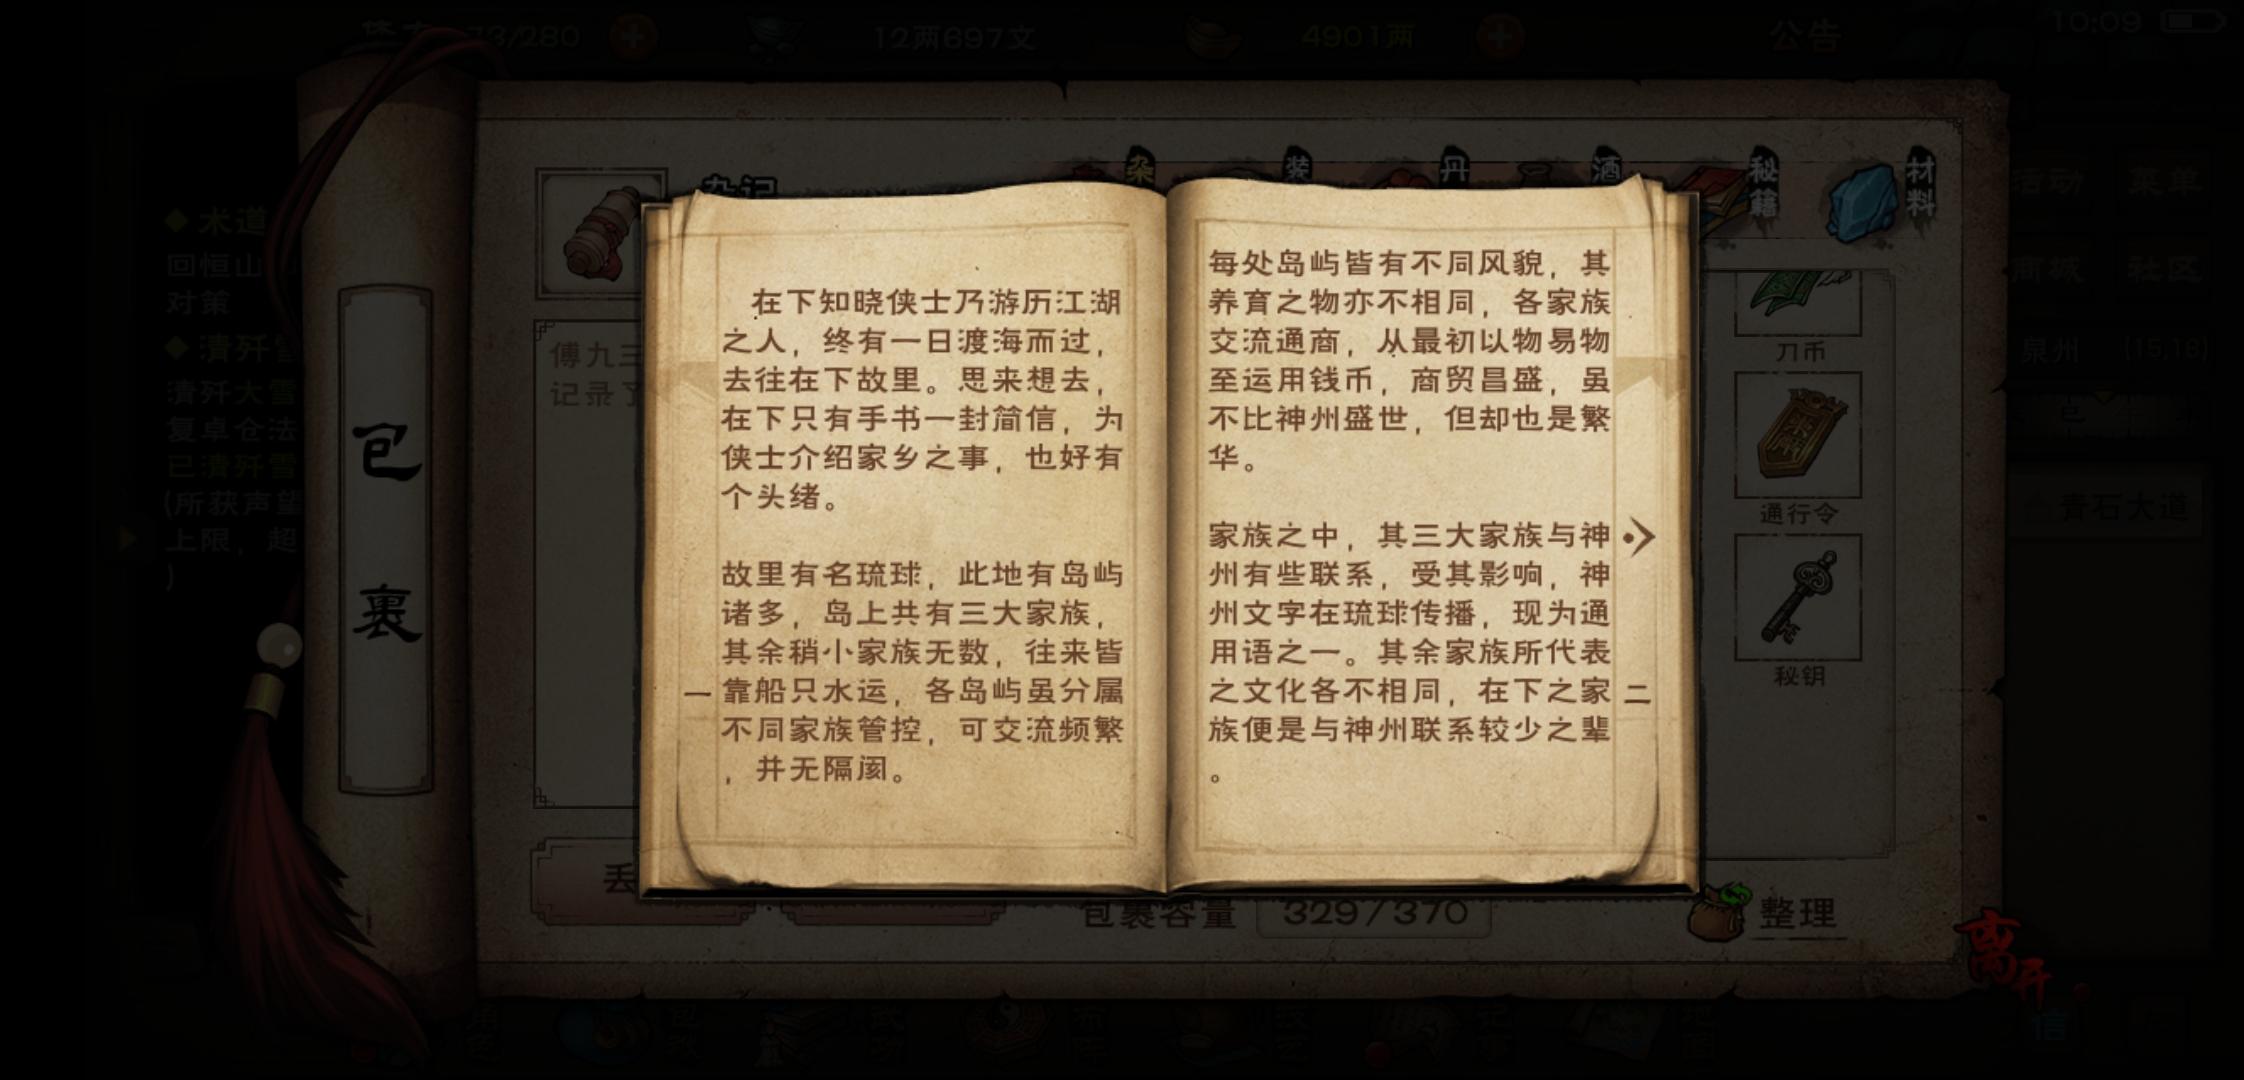 10:09
73/280
12两697文
4901两
公告
杂记
杂
装
丹
酒
秘籍
材料
活动
菜单
商城
社区
泉州 (15,16)
青石大道
术道
回恒山
对策
清歼雪
清歼大雪
复卓仓法
已清歼雪
(所获声望
上限，超
)
包裹
傅九三
记录了
在下知晓侠士乃游历江湖
之人，终有一日渡海而过，
去往在下故里。思来想去，
在下只有手书一封简信，为
侠士介绍家乡之事，也好有
个头绪。
故里有名琉球，此地有岛屿
诸多，岛上共有三大家族，
其余稍小家族无数，往来皆
靠船只水运，各岛屿虽分属
不同家族管控，可交流频繁
，并无隔阂。
一
每处岛屿皆有不同风貌，其
养育之物亦不相同，各家族
交流通商，从最初以物易物
至运用钱币，商贸昌盛，虽
不比神州盛世，但却也是繁
华。
家族之中，其三大家族与神
州有些联系，受其影响，神
州文字在琉球传播，现为通
用语之一。其余家族所代表
之文化各不相同，在下之家
族便是与神州联系较少之辈
。
二
刀币
通行令
秘钥
丢
包裹容量 329/370
整理
离开
信